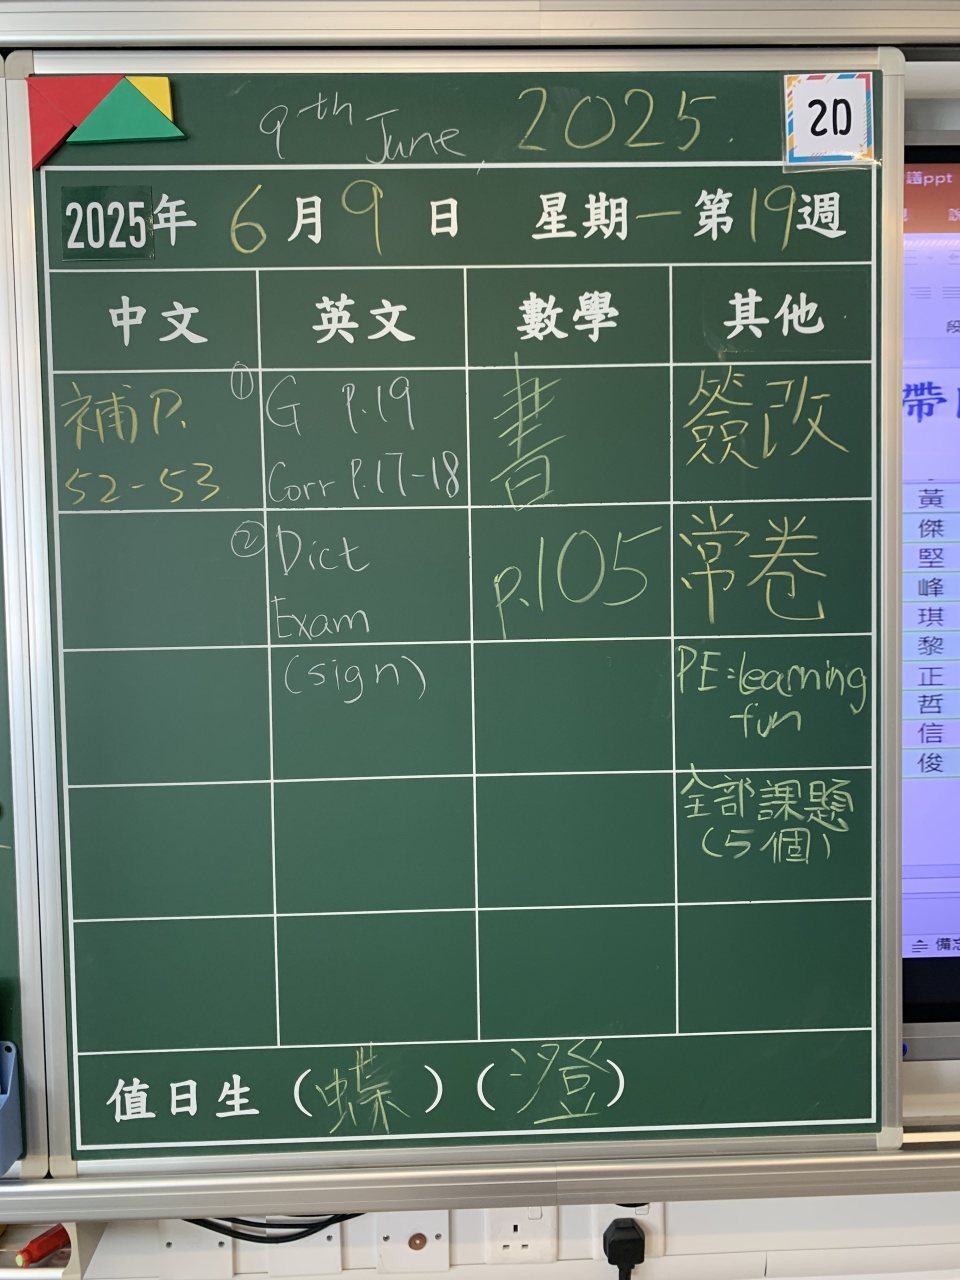 9th June, 2025.
2D
2025年 6月9日 星期一 第19週
中文
英文
數學
其他
補P.
52-53
① G P.19
Corr P.17-18
② Dict
Exam
(sign)
書
p.105
簽改
常卷
PE:learning
fun
全部課題
(5個)
值日生 (蝶) (澄)
議ppt
段
帶
黃
傑
堅
峰
琪
黎
正
哲
信
俊
備忘